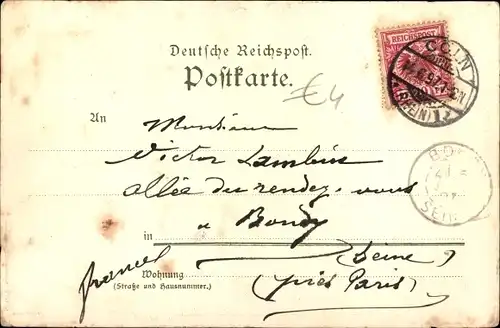 Deutsche Reichspost.
Postkarte.
REICHSPOST
CÖLN
(RHEIN)
€4
An
Monsieur
Victor Lambin
allée du rendez-vous
BO
SEI
à Bondy
in
(Seine)
france
Wohnung
(Straße und Hausnummer.)
(près Paris)